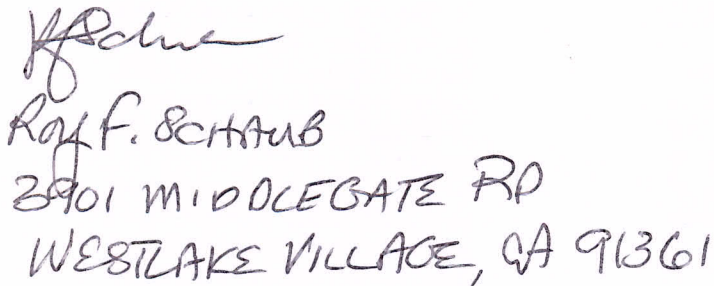 Roy F. SCHAUB
3901 MIDDLEGATE RD
WESTLAKE VILLAGE, CA 91361